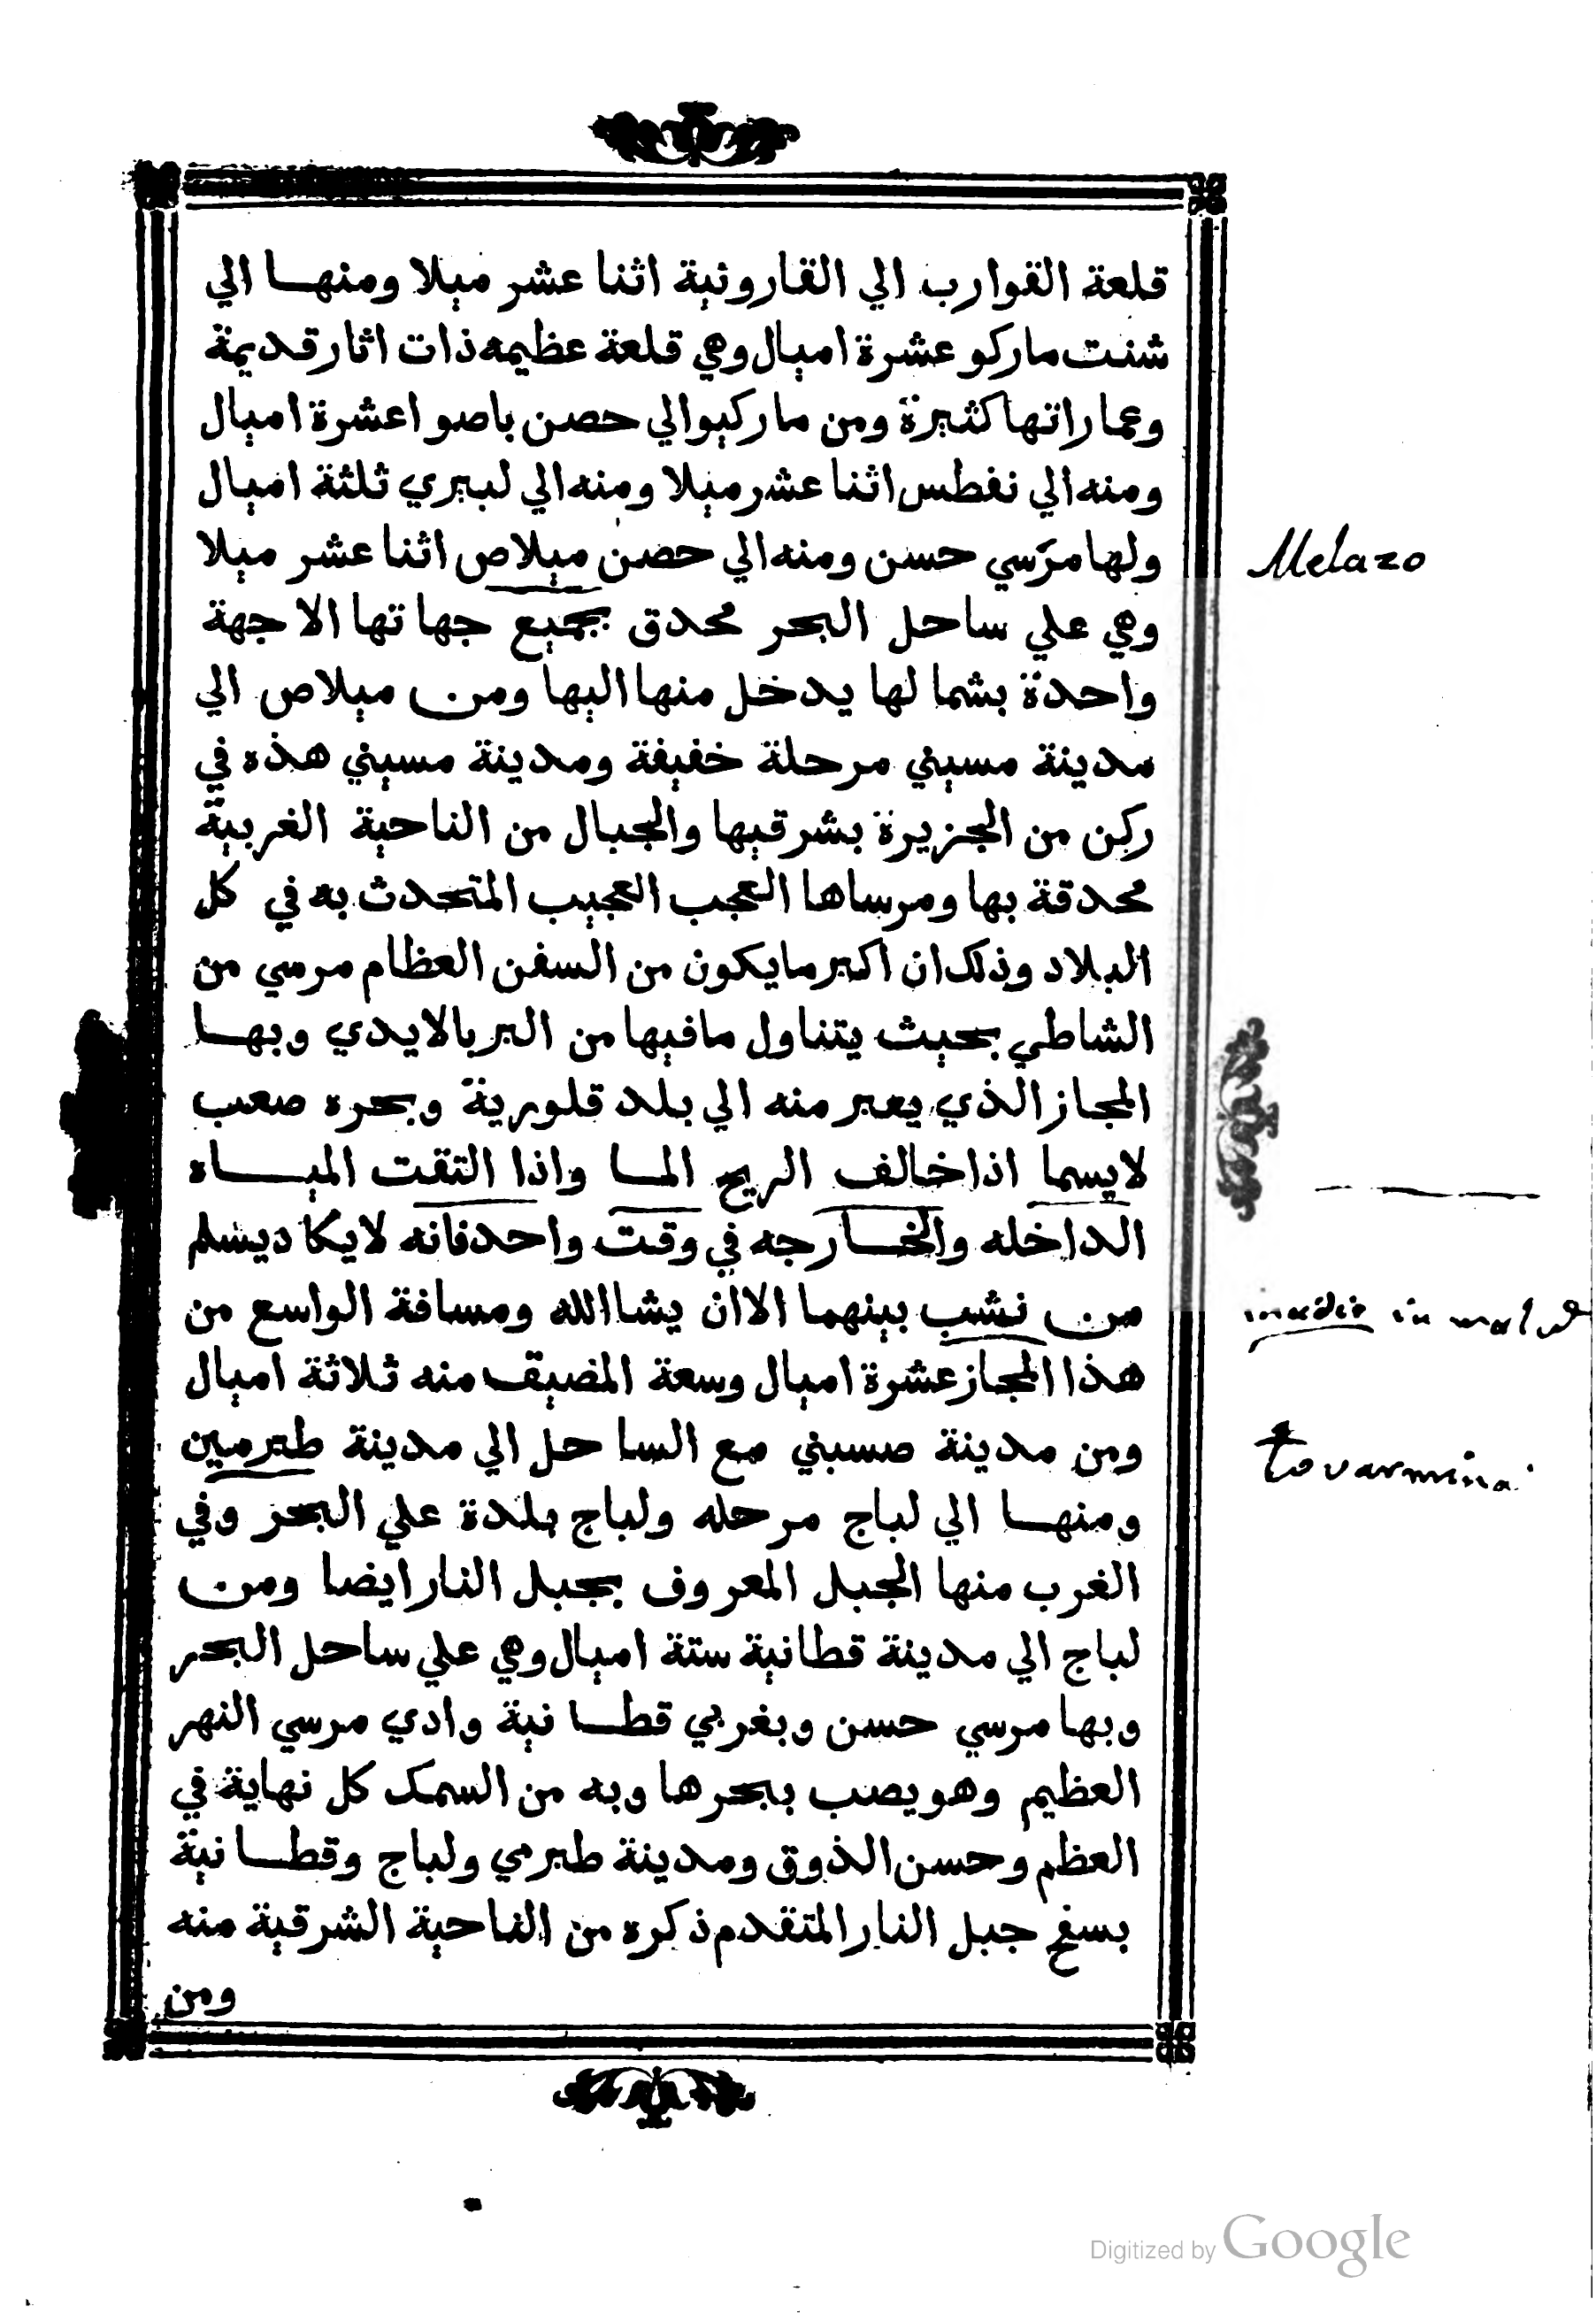 قلعة القوارب الي القارونية اثنا عشر ميلا ومنها الي
شنت ماركو عشرة اميال وهي قلعة عظيمه ذات اثار قديمة
وعماراتها كثيرة ومن ماركيو الي حصن باصوا عشرة اميال
ومنه الي نغطس اثنا عشر ميلا ومنه الي لبيري ثلثة اميال
ولها مرسي حسن ومنه الي حصن ميلاص اثنا عشر ميلا
وهي علي ساحل البحر محدق بجميع جهاتها الا جهة
واحدة بشمالها يدخل منها اليها ومن ميلاص الي
مدينة مسيني مرحلة خفيفة ومدينة مسيني هذه في
ركن من الجزيرة بشرقيها والجبال من الناحية الغربية
محدقة بها ومرساها العجب العجيب المتحدث به في كل
البلاد وذلك ان اكبر مايكون من السفن العظام مرسي من
الشاطي بحيث يتناول مافيها من البر بالايدي وبها
المجاز الذي يعبر منه الي بلد قلورية وبحره صعب
لايسما اذا خالف الريح الما واذا التقت المياه
الداخله والخارجه في وقت واحد فانه لايكاد يسلم
من نشب بينهما الا ان يشا الله ومسافة الواسع من
هذا المجاز عشرة اميال وسعة المضيق منه ثلاثة اميال
ومن مدينة مسيني مع الساحل الي مدينة طبرمين
ومنها الي لباج مرحله ولباج بلدة علي البحر وفي
الغرب منها الجبل المعروف بجبل النار ايضا ومن
لباج الي مدينة قطانية ستة اميال وهي علي ساحل البحر
وبها مرسي حسن وبغربي قطانية وادي مرسي النهر
العظيم وهو يصب ببحرها وبه من السمك كل نهاية في
العظم وحسن الذوق ومدينة طبرمي ولباج وقطانية
بسفح جبل النار المتقدم ذكره من الناحية الشرقية منه
ومن
Melazo
in
tovarmina
Digitized by Google